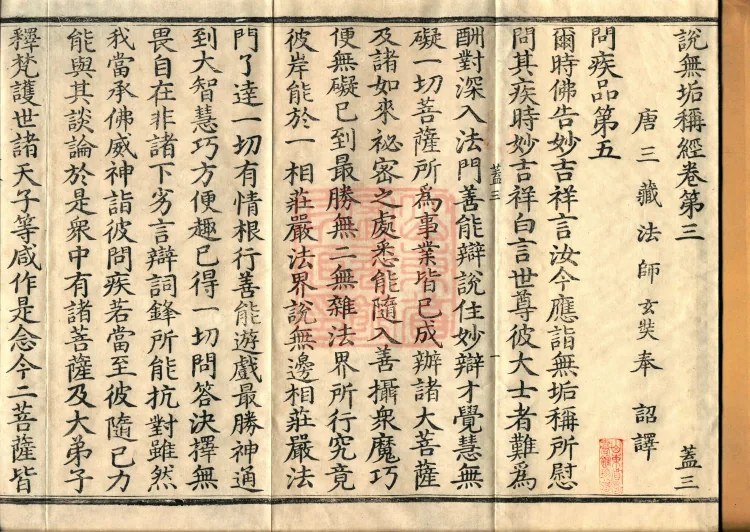 說無垢稱經卷第三 蓋三
唐三藏法師玄奘奉 詔譯
問疾品第五
爾時佛告妙吉祥言汝今應詣無垢稱所慰
問其疾時妙吉祥白言世尊彼大士者難為
蓋三 一
酬對深入法門善能辯說住妙辯才覺慧無
礙一切菩薩所為事業皆已成辦諸大菩薩
及諸如來祕密之處悉能隨入善攝眾魔巧
便無礙已到最勝無二無雜法界所行究竟
彼岸能於一相莊嚴法界說無邊相莊嚴法
門了達一切有情根行善能遊戲最勝神通
到大智慧巧方便趣已得一切問答決擇無
畏自在非諸下劣言辯詞鋒所能抗對雖然
我當承佛威神詣彼問疾若當至彼隨己力
能與其談論於是眾中有諸菩薩及大弟子
釋梵護世諸天子等咸作是念今二菩薩皆